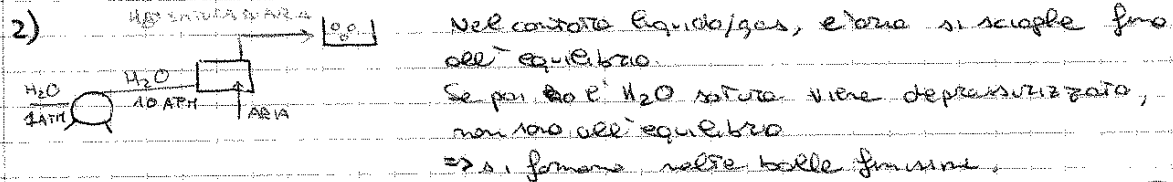 2)
H2O SATURA DI ARIA
H2O
1 ATM
H2O
10 ATM
ARIA
Nel contatto liquido/gas, l'aria si scioglie fino
all'equilibrio.
Se poi l'H2O satura viene depressurizzata,
non sarò all'equilibrio
=> si formano molte bolle finissime.